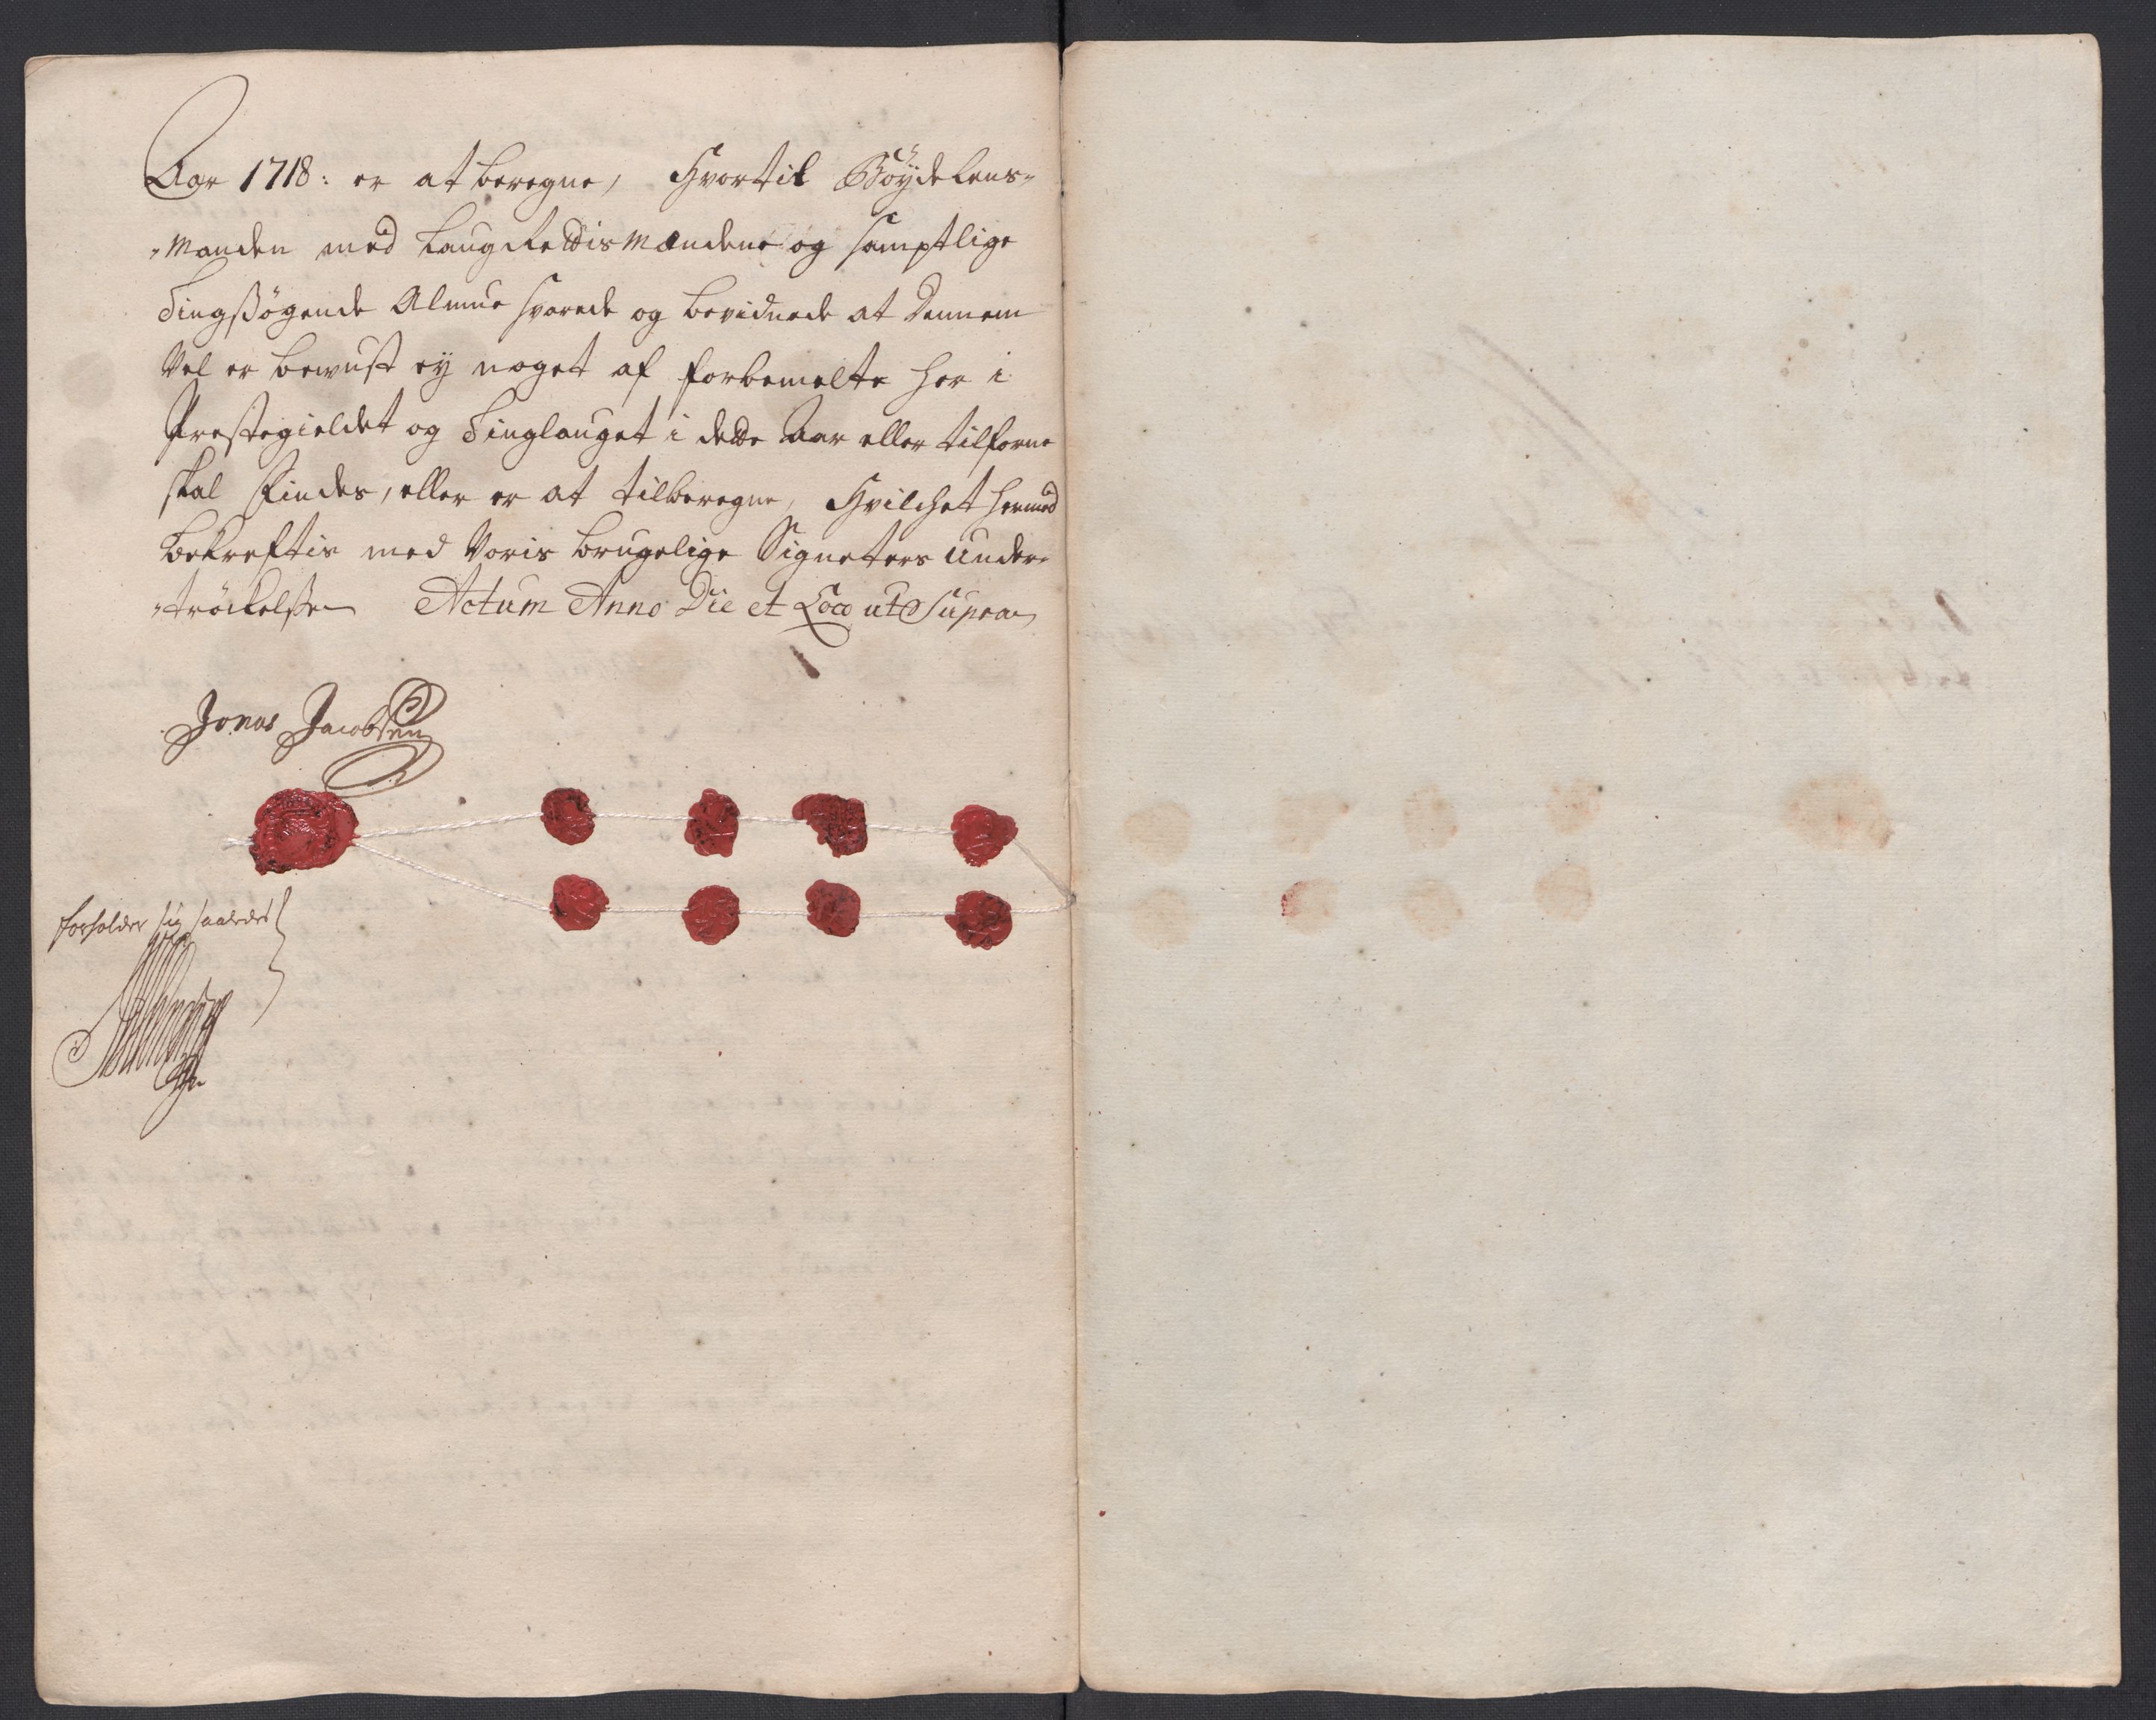 Aar 1718: er at beregne, Hvortil Böÿdelens-
manden med LaugRettismændene og samptlige
Tingsøgende Almue svarede og bevidnede at dennem
Vel er bewust ey noget af forbemelte her i
Prestegieldet og Tinglauget i dette Aar eller tilforne
skal findes, eller er at tilberegne, Hvilchet hermed
Bekreftis med Voris brugelige Signeters under-
tröckelse Actum Anno Die et Loco ut Supra
Jonas Jacobsen
forholder sig saaledes